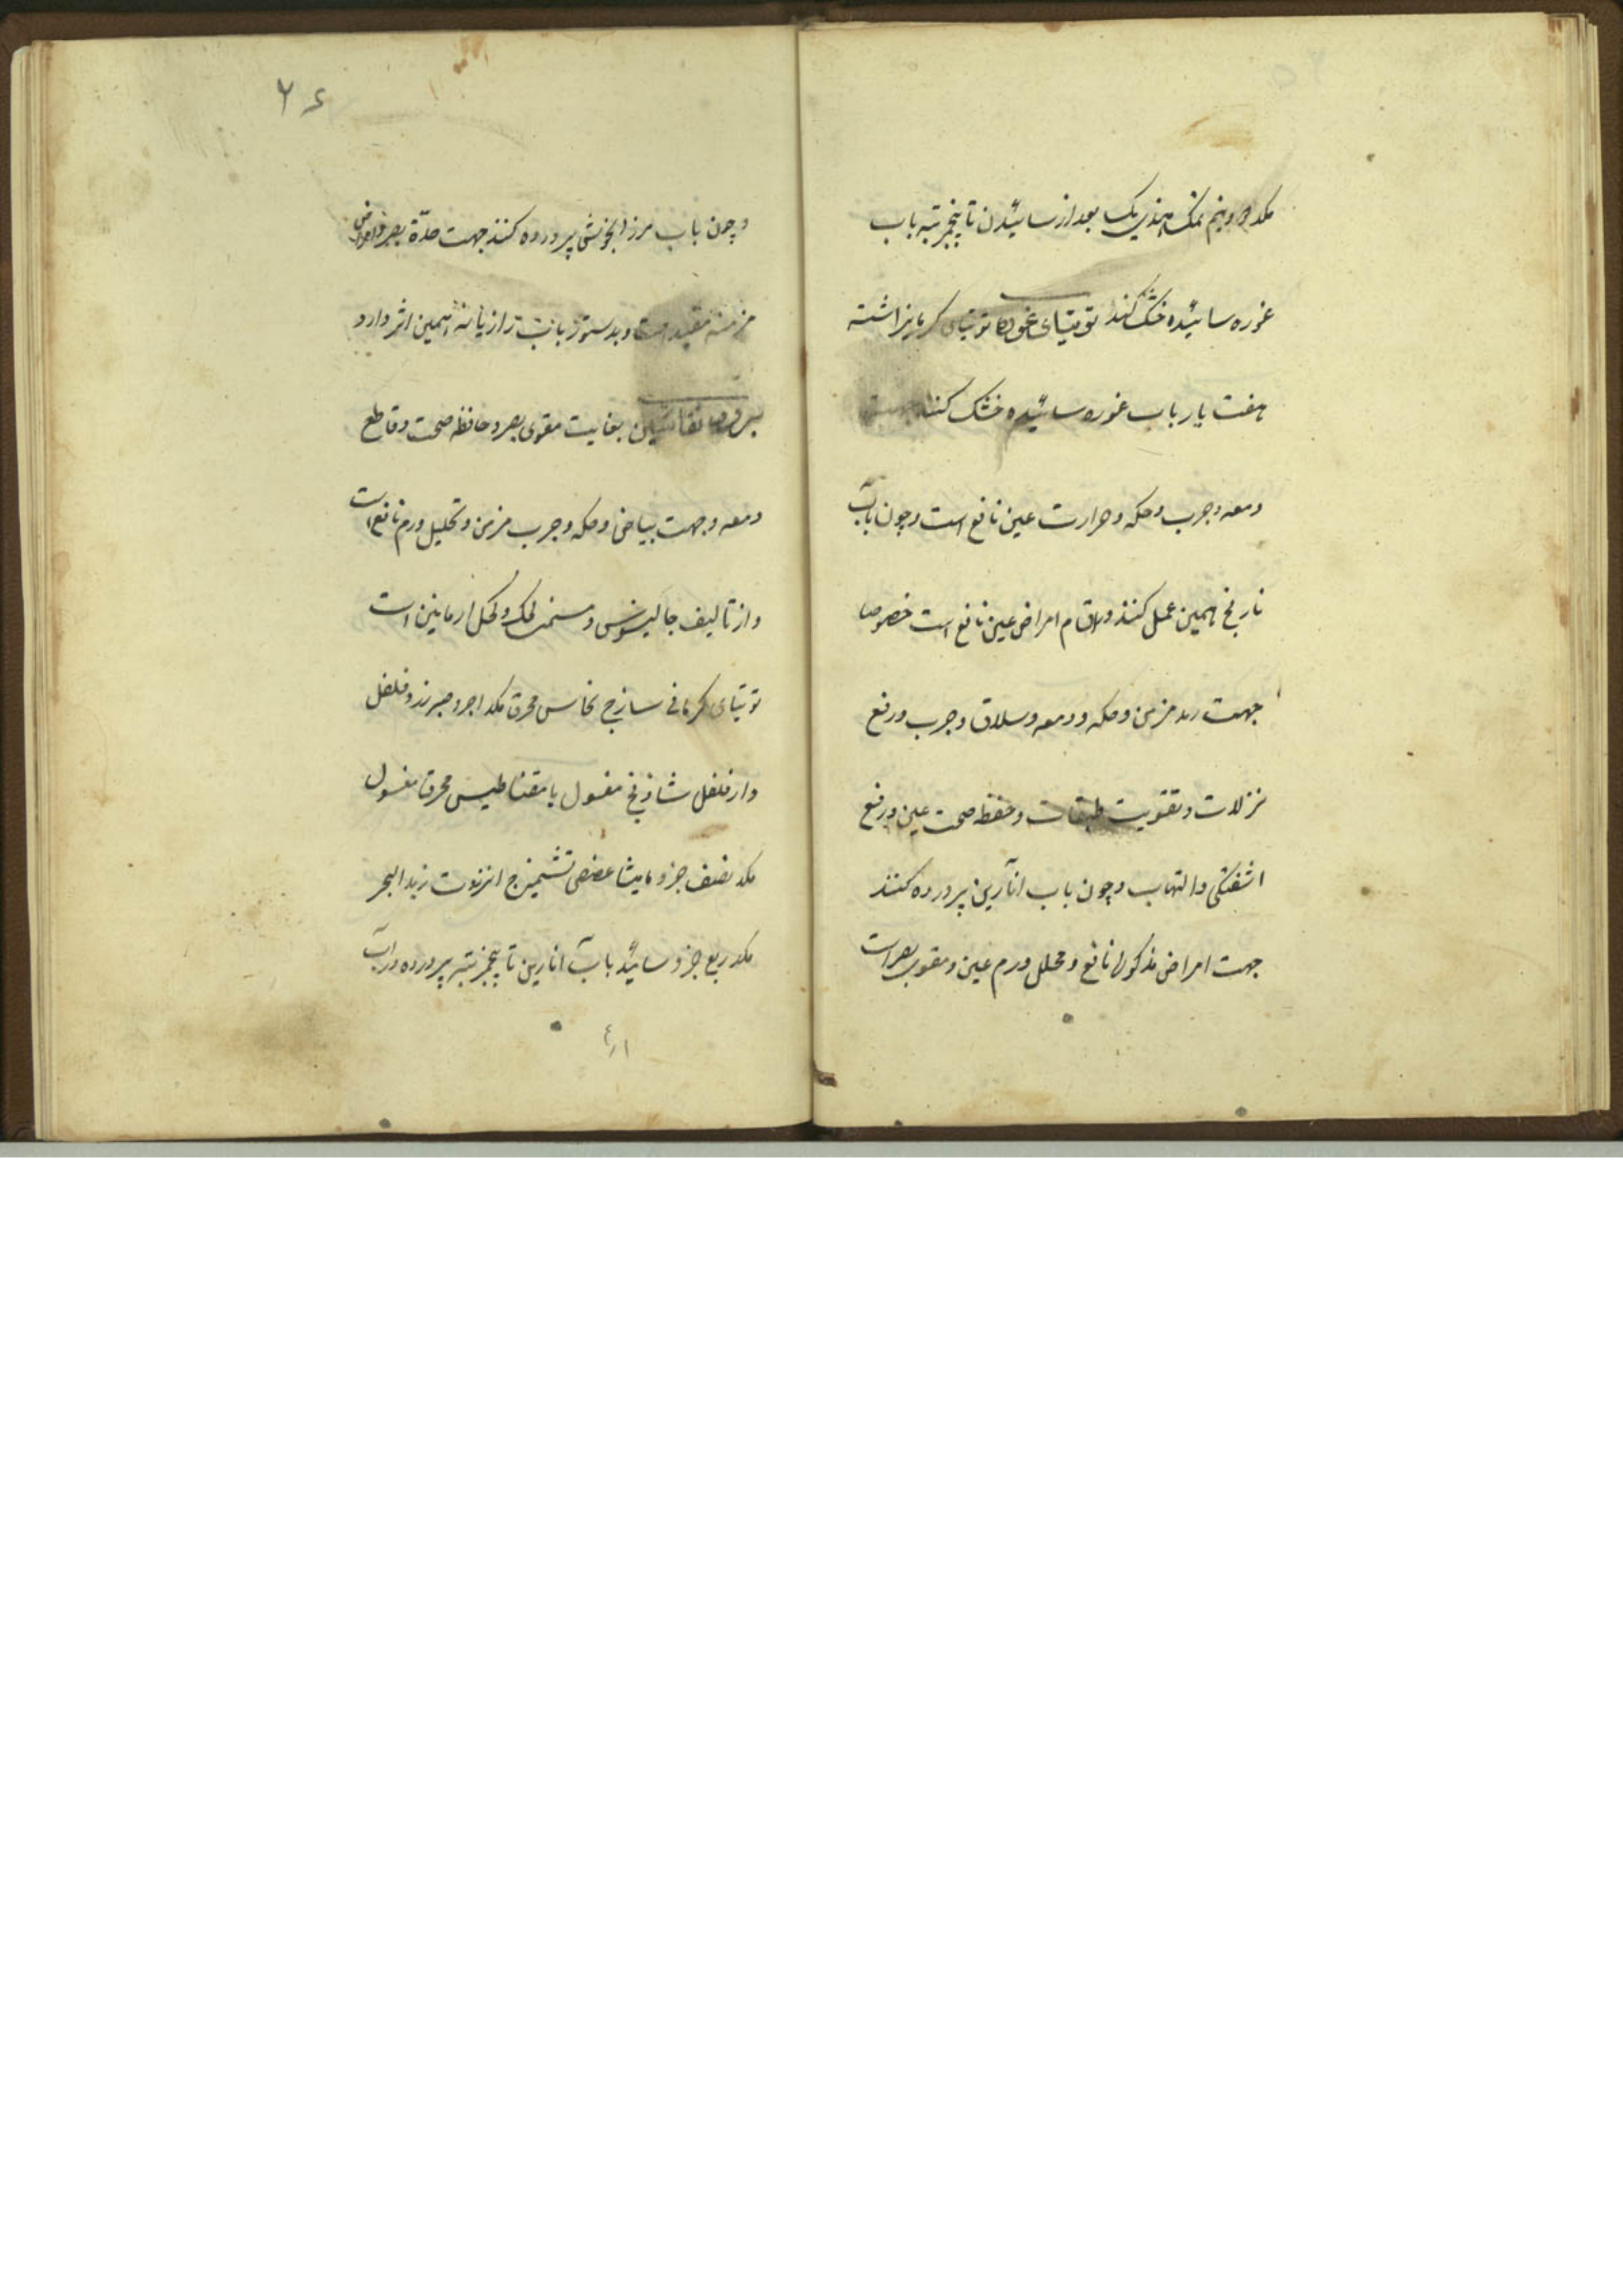 نمک هندی یک بعد از سائیدن تا پنجمرتبه باب
غوره سائیده خشک کنند توتیای غوره توتیای کرمانی
هفت بار باب غوره سائیده خشک کنند
دمعه و جرب و حکه و حرارت عین نافع است و چون باب
نارنج همین عمل کنند در اقسام امراض عین نافع است خصوصا
جهت رمد مزمن و حکه و دمعه و سلاق و جرب و رفع
نزلات و تقویت طبقات و حفظ صحت عین و رفع
اشفتکی و التهاب و چون باب انارین پرورده کنند
جهت امراض مذکوره نافع و محلل ورم عین و مقوی بصر است
۲۶
و چون باب مرزنجوش پرورده کنند جهت حدّة بصر و امراض
مزمنه مفید است و بدستور باب رازیانه همین اثر دارد
بغایت مقوی بصر و حافظ صحت و قاطع
دمعه و جهت بیاض و حکه و جرب مزمن و تحلیل ورم نافع است
و از تالیف جالینوس و است
توتیای کرمانی ساذج نحاس محرق مکد اجزو صبر زرد فلفل
دارفلفل شاذنج مغسول یا مقناطیس محرق مغسول
مکد نصف جزو مامیثا عفص تشمیزج انزروت زبد البحر
مکد ربع جزو سائیده باب انارین تا پنجمرتبه پرورده در اب